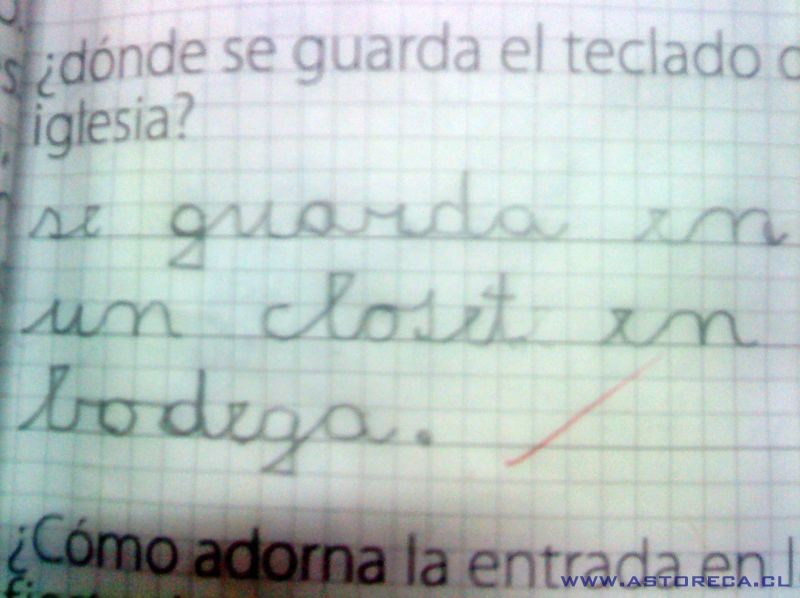 ¿dónde se guarda el teclado
iglesia?
se guarda en
un closet en
bodega.
¿Cómo adorna la entrada en l
www.astoreca.cl